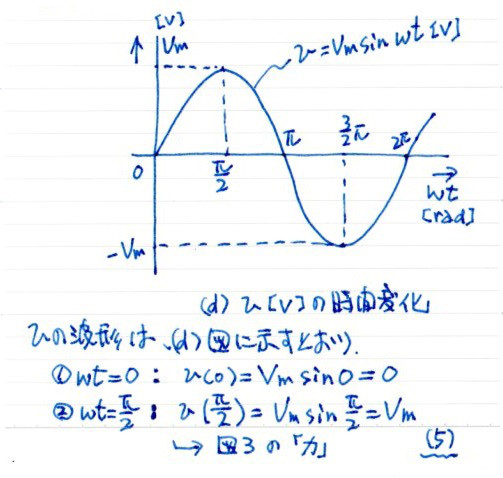 [V]
↑ Vm
v=Vm sin wt [V]
0
π/2
π
3/2π
2π
→
wt
[rad]
-Vm
(d) v[V]の時間変化
vの波形は、(d)図に示すとおり。
① wt=0 : v(0)=Vm sin0=0
② wt=π/2 : v(π/2)=Vm sin π/2=Vm
↳ 図3の「力」 (5)